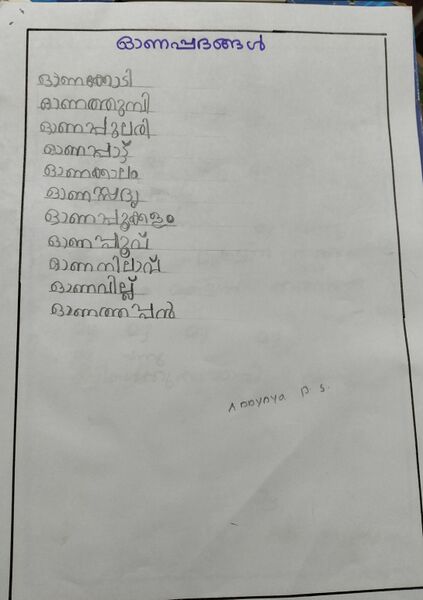 ഓണപ്പദങ്ങൾ
ഓണക്കോടി
ഓണത്തുമ്പി
ഓണപ്പുലരി
ഓണപ്പാട്ട്
ഓണക്കാലം
ഓണസദ്യ
ഓണപ്പൂക്കളം
ഓണപ്പൂവ്
ഓണനിലാവ്
ഓണവില്ല്
ഓണത്തപ്പൻ
P. S.